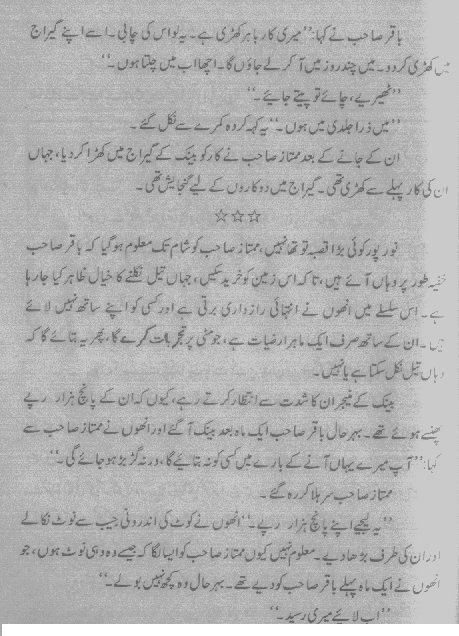 باقر صاحب نے کہا: ’’میری کار باہر کھڑی ہے۔ یہ لو اس کی چابی۔ اسے اپنے گیراج
میں کھڑی کر دو۔ میں چند روز میں آ کر لے جاؤں گا۔ اچھا اب میں چلتا ہوں۔‘‘
’’ٹھیریے، چائے تو پیتے جائیے۔‘‘
’’میں ذرا جلدی میں ہوں۔‘‘ یہ کہہ کر وہ کمرے سے نکل گئے۔
ان کے جانے کے بعد ممتاز صاحب نے کار کو بینک کے گیراج میں کھڑا کر دیا، جہاں
ان کی کار پہلے سے کھڑی تھی۔ گیراج میں دو کاروں کے لیے گنجایش تھی۔
☆☆☆
نور پور کوئی بڑا قصبہ تو تھا نہیں، ممتاز صاحب کو شام تک معلوم ہو گیا کہ باقر صاحب
خفیہ طور پر وہاں آئے ہیں، تا کہ اس زمین کو خرید سکیں، جہاں تیل نکلنے کا خیال ظاہر کیا جا رہا
ہے۔ اس سلسلے میں انھوں نے انتہائی رازداری برتی ہے اور کسی کو اپنے ساتھ نہیں لائے
ہیں۔ ان کے ساتھ صرف ایک ماہر ارضیات ہے، جو مٹی پر تجربات کرے گا، پھر یہ بتائے گا کہ
وہاں تیل نکل سکتا ہے یا نہیں۔
بینک کے منیجر ان کا شدت سے انتظار کرتے رہے، کیوں کہ ان کے پانچ ہزار رپے
پھنسے ہوئے تھے۔ بہر حال باقر صاحب ایک ماہ بعد بینک آ گئے اور انھوں نے ممتاز صاحب سے
کہا: ’’آپ میرے یہاں آنے کے بارے میں کسی کو نہ بتائیے گا، ورنہ گڑبڑ ہو جائے گی۔‘‘
ممتاز صاحب سر ہلا کر رہ گئے۔
’’یہ لیجیے اپنے پانچ ہزار رپے۔‘‘ انھوں نے کوٹ کی اندرونی جیب سے نوٹ نکالے
اور ان کی طرف بڑھا دیے۔ معلوم نہیں کیوں ممتاز صاحب کو ایسا لگا کہ جیسے وہ وہی نوٹ ہوں، جو
انھوں نے ایک ماہ پہلے باقر صاحب کو دیے تھے۔ بہر حال وہ کچھ نہیں بولے۔
’’اب لائیے میری رسید۔‘‘